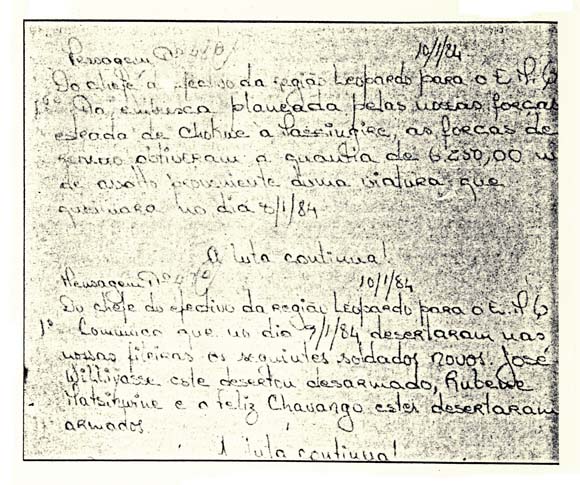 Mensagem Nº 10/1/84
Do chefe d efectivo da região Leopardo para o E.
1º Da embusca planeada pelas nossas forças
estrada de Chokwe a Massingire, as forças de
obtiveram a quantia de 6.250,00 m
de assalto proveniente duma viatura que
queimara no dia 8/1/84
A luta continua!
Mensagem Nº 10/1/84
Do chefe do efectivo da região Leopardo para o E.
1º Comunico que no dia 9/1/84 desertaram nas
nossas fileiras os seguintes soldados novos. José
este desertou desarmado, Rubene
e o Feliz Chavango estes desertaram
armados.
A luta continua!